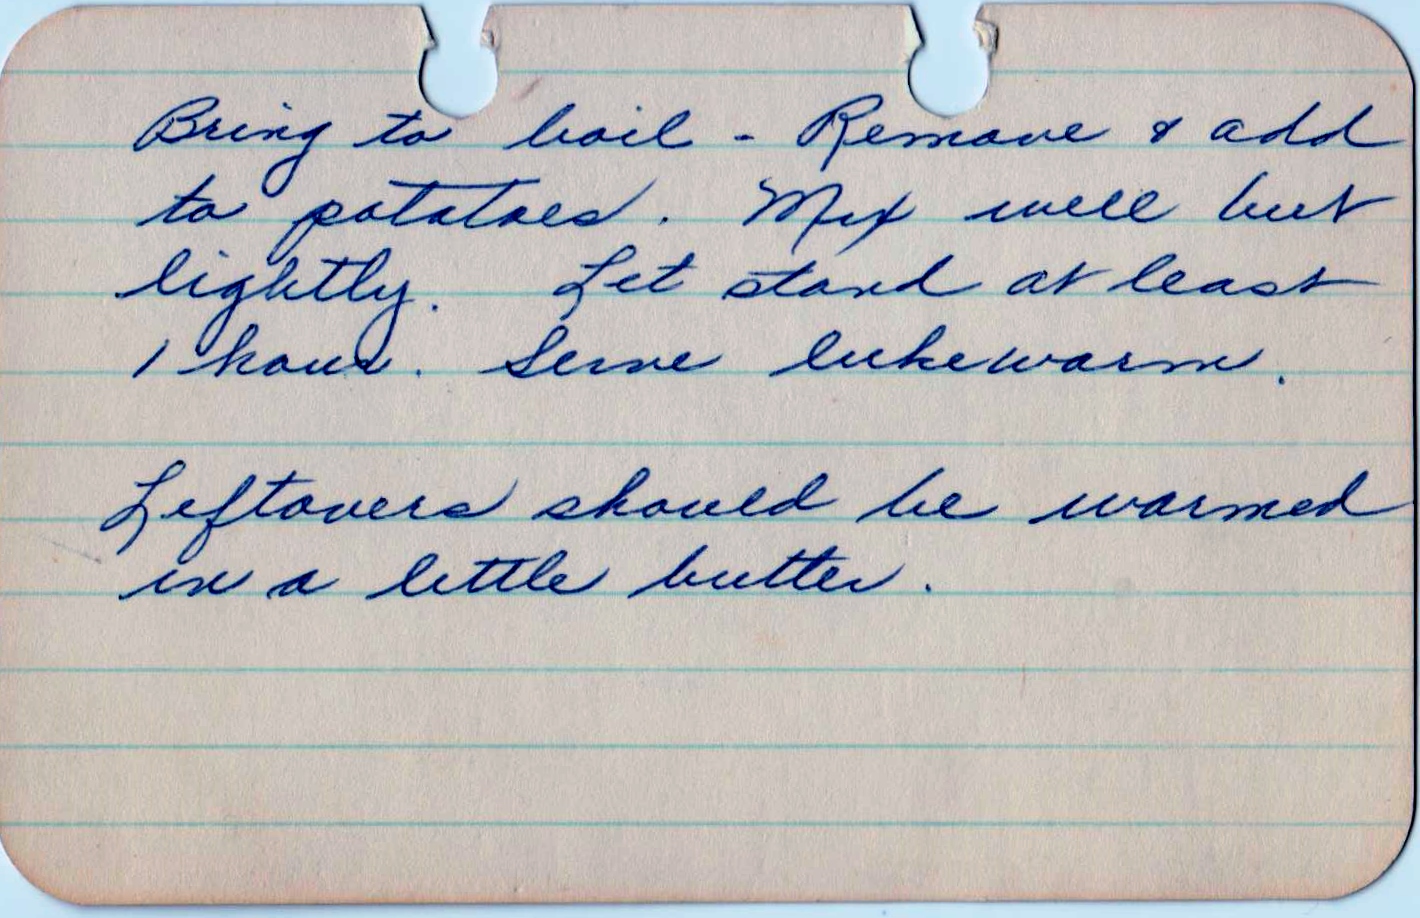 Bring to boil - Remove & add
to potatoes. Mix well but
lightly. Let stand at least
1 hour. Serve lukewarm.
Leftovers should be warmed
in a little butter.